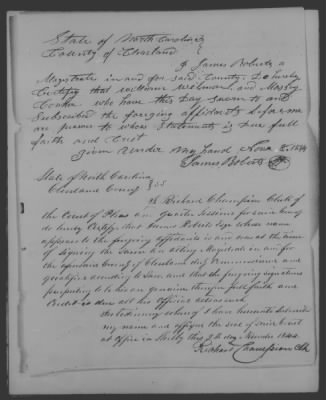 State of North Carolina
County of Cleavland
I James Roberts a
Magistrate in and for said County Do hereby
Certify that William Wellmon, and Mosby
who have this Day sworn to and
Subscribed the forging affidavits before me
are persons to whose Statements is Due full
faith and Credit
given under my hand Nov 8, 1844
James Roberts
State of North Carolina
Cleveland County SS
I Richard Champion Clerk of
the Court of Pleas and Quarter Sessions for said County
do hereby Certify, that James Roberts Esqr whose name
appears to the foregoing affidavits is and was at the time
of signing the same an acting Magistrate in and for
the aforesaid County of Cleveland duly Commissioned and
qualified according to Law, and that the foregoing signatures
purporting to be his are genuine therefore full faith and
Credit is due all his Official acts as such
In testimony whereof I have hereunto subscribed
my name and affixed the seal of said Court
at Office in Shelby this 9th day November 1844
Richard Champion Clk